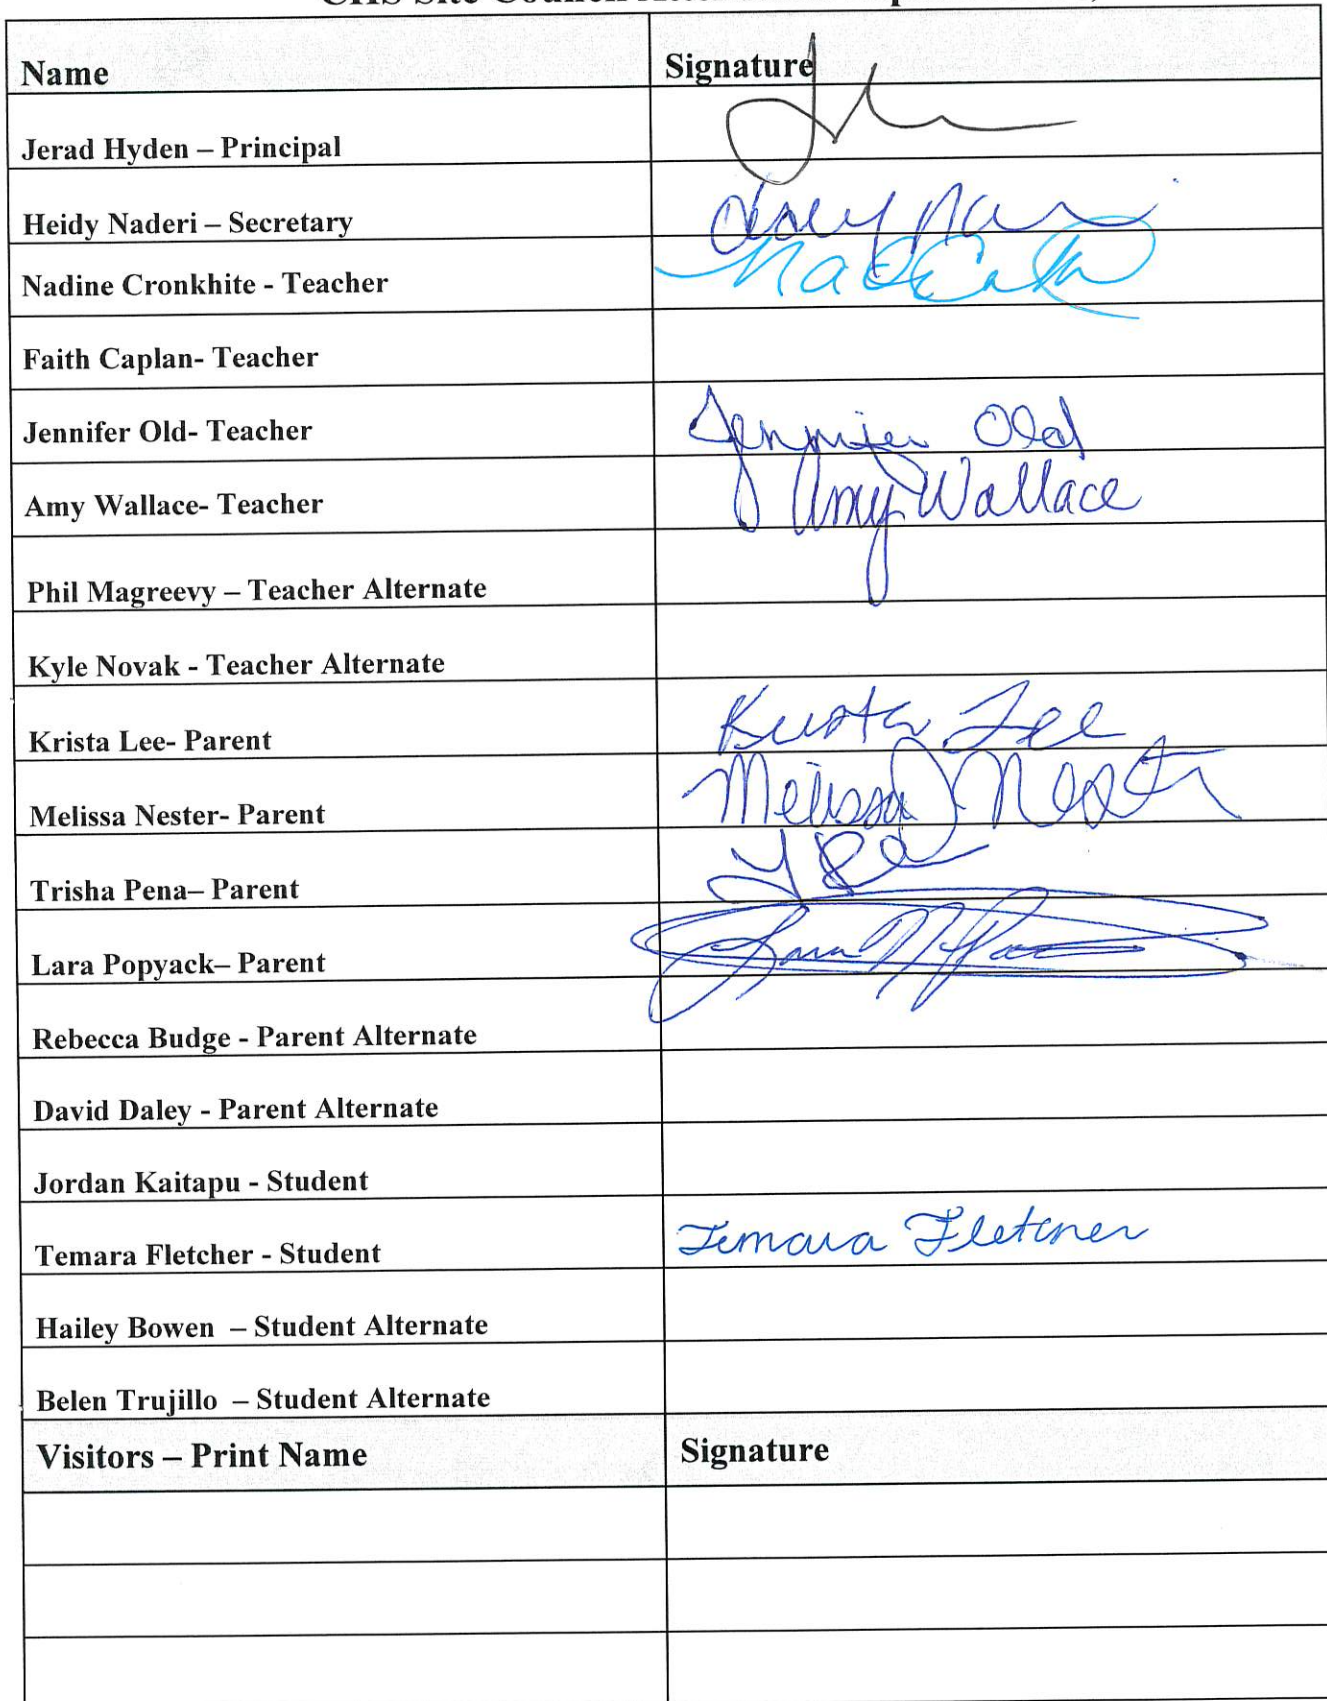 CHS Site Council
Name Signature
Jerad Hyden – Principal
Heidy Naderi – Secretary
Nadine Cronkhite - Teacher
Faith Caplan- Teacher
Jennifer Old- Teacher Jennifer Old
Amy Wallace- Teacher Amy Wallace
Phil Magreevy – Teacher Alternate
Kyle Novak - Teacher Alternate
Krista Lee- Parent Krista Lee
Melissa Nester- Parent Melissa Nester
Trisha Pena– Parent
Lara Popyack– Parent
Rebecca Budge - Parent Alternate
David Daley - Parent Alternate
Jordan Kaitapu - Student
Temara Fletcher - Student Temara Fletcher
Hailey Bowen – Student Alternate
Belen Trujillo – Student Alternate
Visitors – Print Name Signature